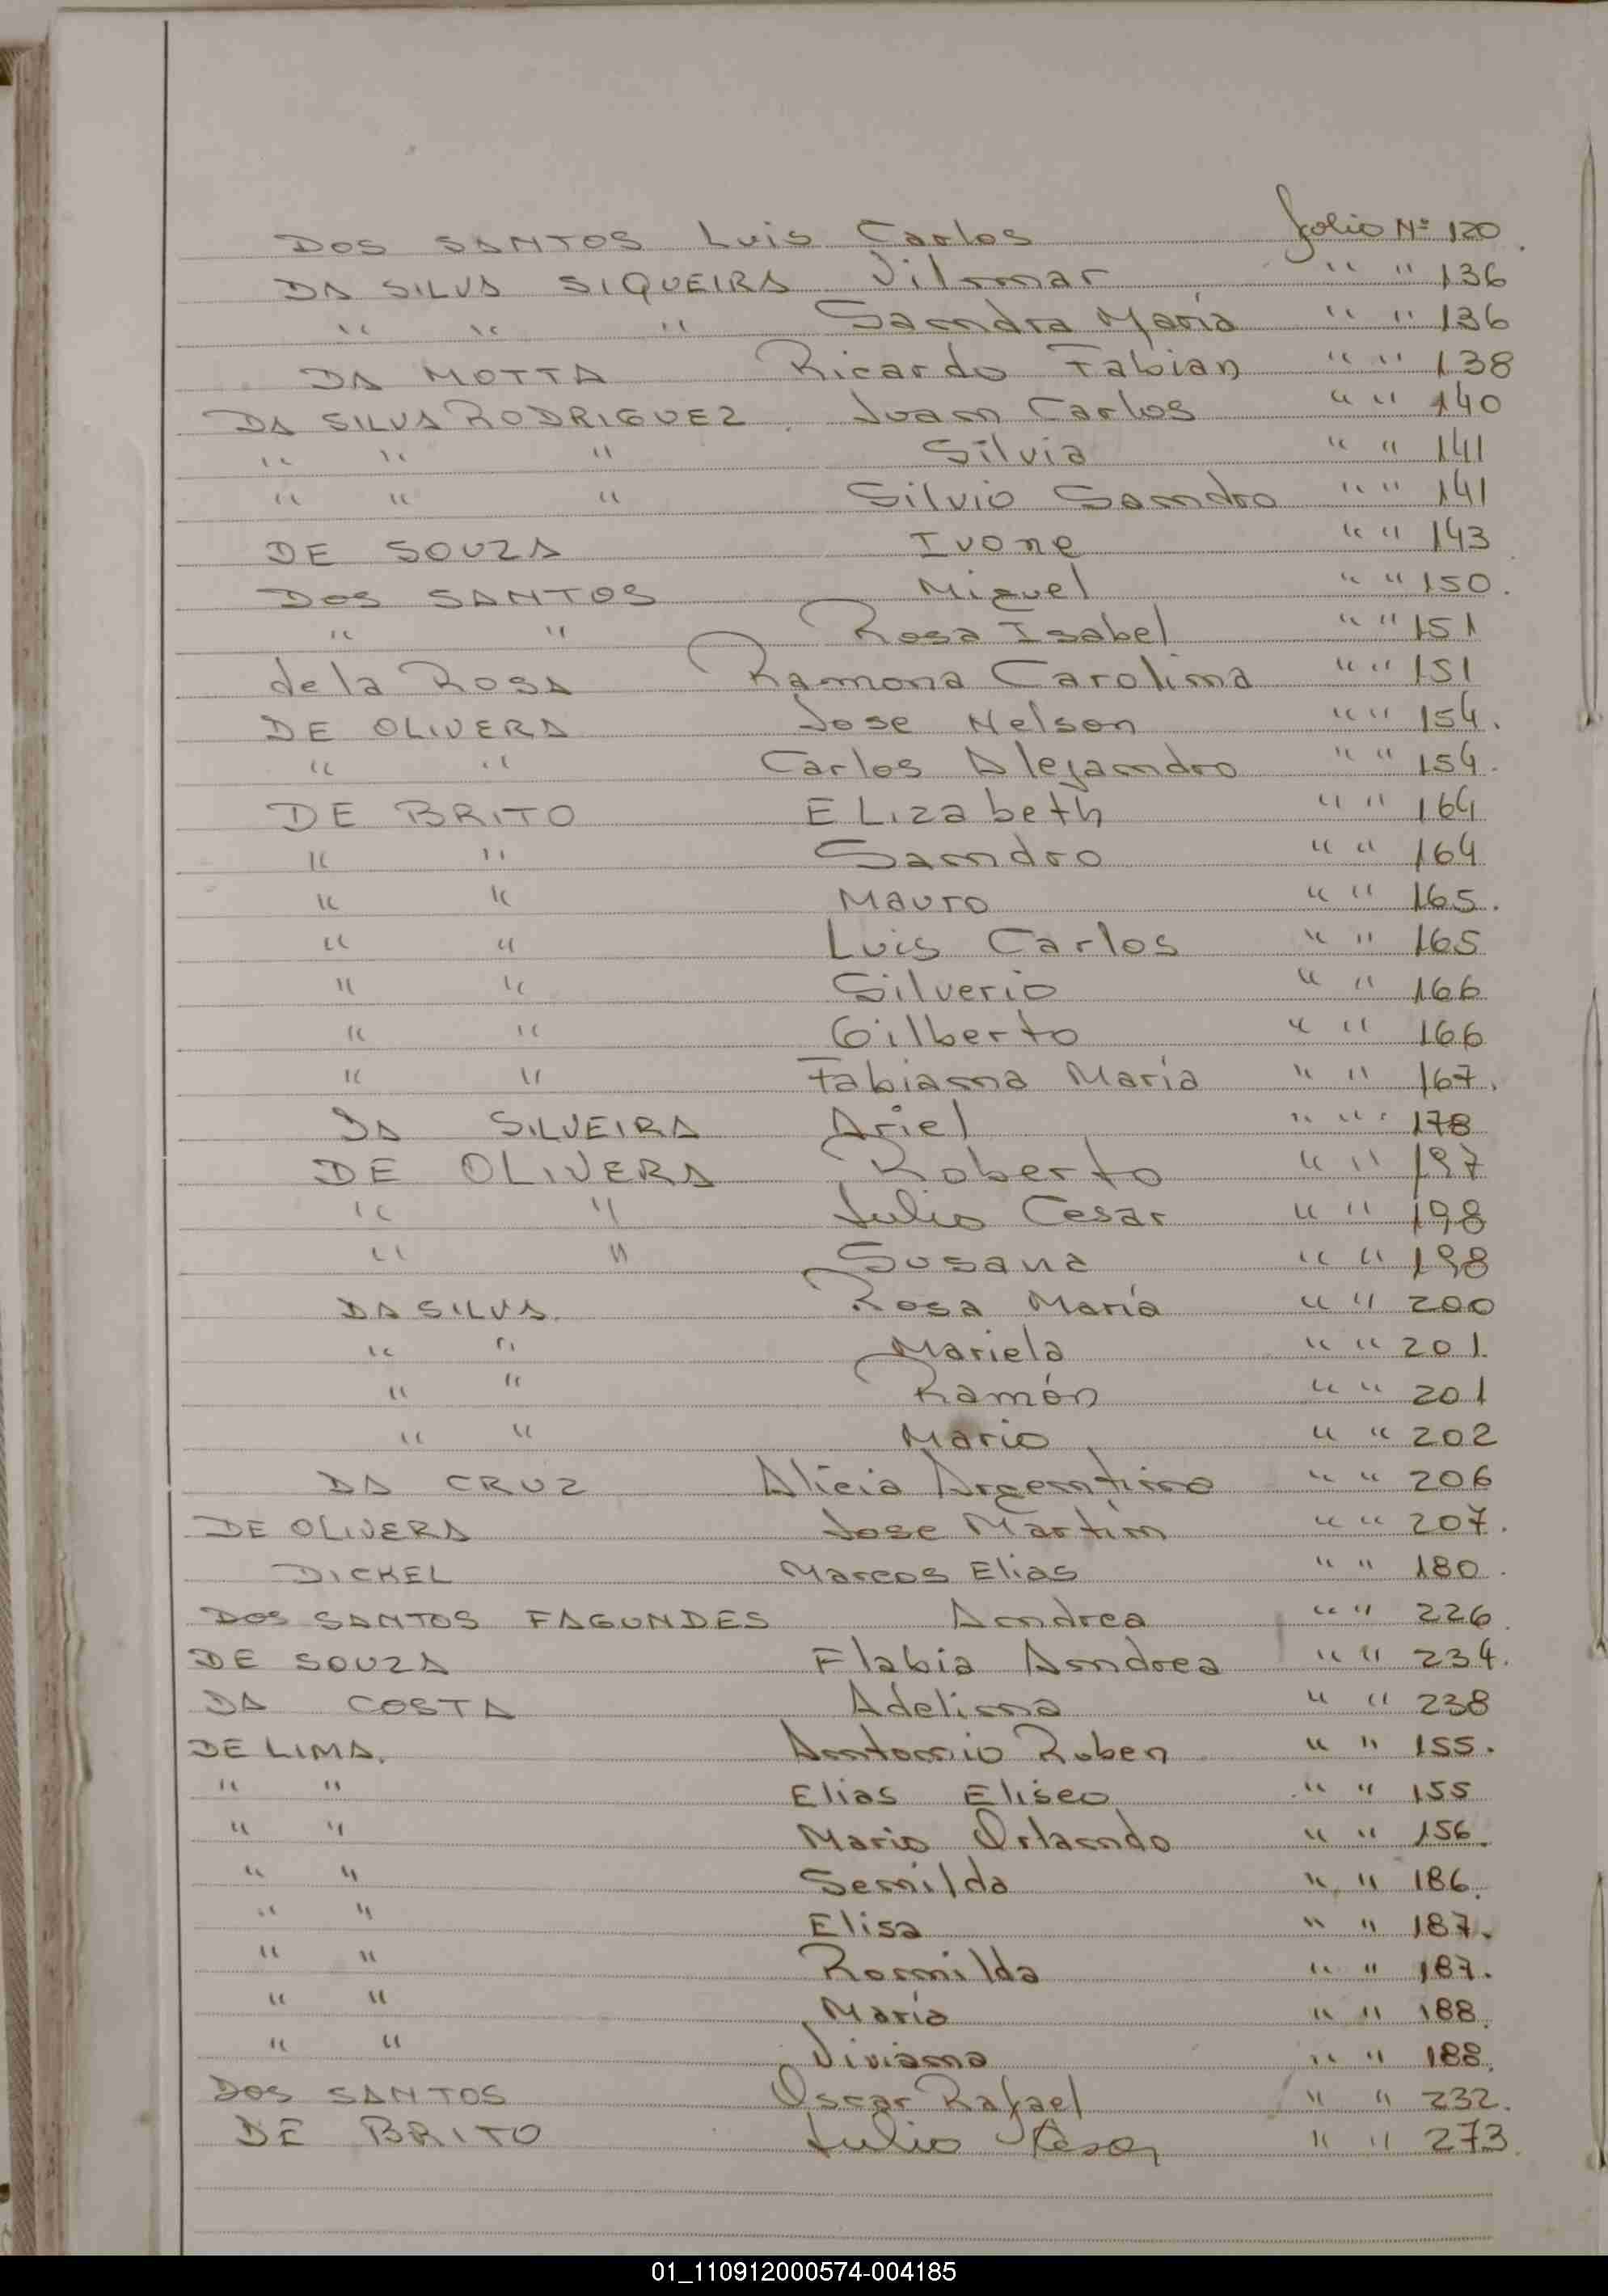 DOS SANTOS Luis Carlos folio Nº 120.
DA SILVA SIQUEIRA Vilmar " " 136
" " " Sandra María " " 136
DA MOTTA Ricardo Fabian " " 138
DA SILVA RODRIGUEZ. Juan Carlos " " 140
" " " Silvia " " 141
" " " Silvio Sandro " " 141
DE SOUZA Ivone " " 143
DOS SANTOS Miguel " " 150.
" " Rosa Isabel " " 151
de la Rosa Ramona Carolina " " 151
DE OLIVERA Jose Nelson " " 154.
" " Carlos Alejandro " " 154.
DE BRITO ELizabeth " " 164
" " Sandro " " 164
" " Mauro " " 165.
" " Luis Carlos " " 165
" " Silverio " " 166
" " Gilberto " " 166
" " Fabiana María " " 167.
DA SILVEIRA Ariel " " 178
DE OLIVERA Roberto " " 197
" " Julio Cesar " " 198
" " Susana " " 198
DA SILVA. Rosa María " " 200
" " Mariela " " 201
" " Ramón " " 201
" " Mario " " 202
DA CRUZ Alicia Argentina " " 206
DE OLIVERA Jose Martin " " 207.
DICKEL Marcos Elias " " 180.
DOS SANTOS FAGUNDES Andrea " " 226.
DE SOUZA Flabia Andrea " " 234.
DA COSTA Adelina " " 238
DE LIMA. Antonio Ruben " " 155.
" " Elias Eliseo " " 155
" " Mario Orlando " " 156.
" " Semilda " " 186.
" " Elisa " " 187.
" " Romilda " " 187.
" " María " " 188.
" " Viviana " " 188.
DOS SANTOS Oscar Rafael " " 232.
DE BRITO Julio Cesar " " 273.
01_110912000574-004185